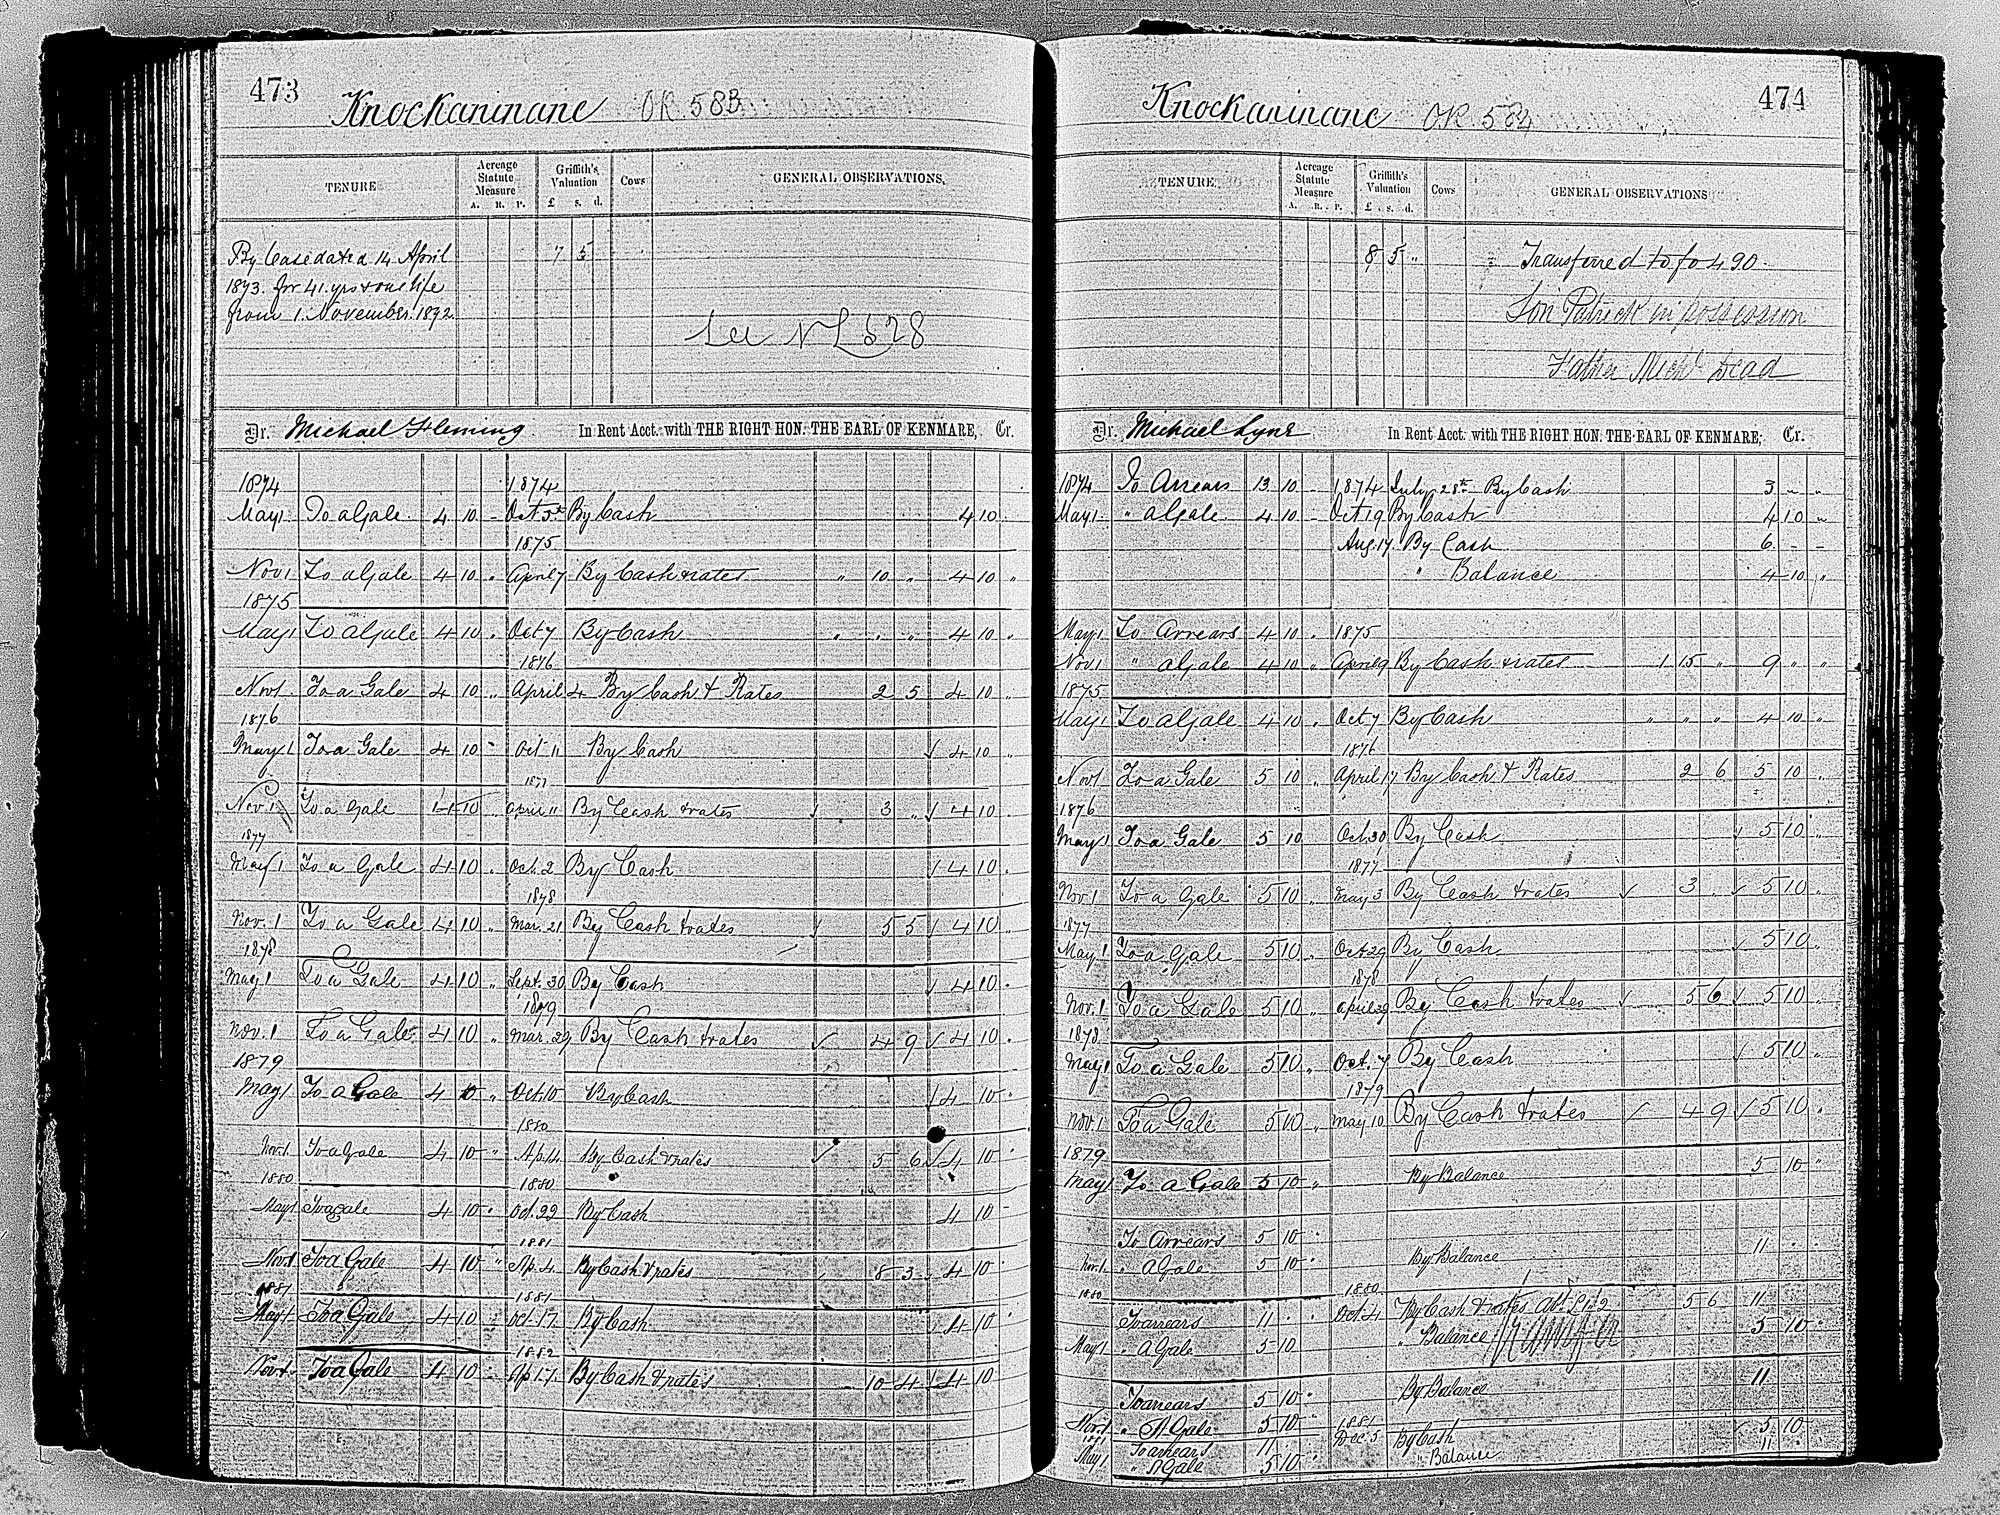 473
Knockaninane OR 583
TENURE
Acreage Statute Measure
A. R. P.
Griffith's Valuation
£ s. d.
Cows
GENERAL OBSERVATIONS.
By Lease dated 14 April 7 5
1873. for 41 yrs & one life
from 1. November. 1872.
See N L 578
Dr. Michael Fleming In Rent Acct. with THE RIGHT HON. THE EARL OF KENMARE, Cr.
1874 1874
May 1 To a Gale 4 10 - Oct 5th By Cash 4 10
1875
Nov 1 To a Gale 4 10 " April 7 By Cash & rates " 10 " 4 10 "
1875
May 1 To a Gale 4 10 " Oct 7 By Cash " " " 4 10 "
1876
Nov 1 To a Gale 4 10 " April 4 By Cash & Rates 2 5 4 10 "
1876
May 1 To a Gale 4 10 - Oct 11 By Cash 4 10 "
1877
Nov. 1 To a Gale 4 10 " April 11 By Cash & rates 3 " 4 10 "
1877
May 1 To a Gale 4 10 " Oct. 2 By Cash 4 10 "
1878
Nov. 1 To a Gale 4 10 " Mar. 21 By Cash & rates 5 5 4 10 "
1878
May 1 To a Gale 4 10 " Sept. 30 By Cash 4 10 "
1879
Nov. 1 To a Gale 4 10 " Mar. 29 By Cash & rates 4 9 4 10 "
1879
May 1 To a Gale 4 10 " Oct 10 By Cash 4 10 "
1880
Nov. 1 To a Gale 4 10 " Ap. 14 By Cash & rates 5 6 4 10 "
1880 1880
May 1 To a Gale 4 10 " Oct. 22 By Cash 4 10 -
1881
Nov. 1 To a Gale 4 10 " Ap. 4 By Cash & rates 8 3 4 10 "
1881 1881
May 1 To a Gale 4 10 " Oct. 17 By Cash 4 10 "
1882
Nov 1 To a Gale 4 10 " Ap 17 By Cash & rates 10 4 4 10
474
Knockaninane OR 584
TENURE
Acreage Statute Measure
A. R. P.
Griffith's Valuation
£ s. d.
Cows
GENERAL OBSERVATIONS
8 5 " Transferred to fo 490
Son Patrick in possession
Father Michl dead
Dr. Michael Lyne In Rent Acct. with THE RIGHT HON. THE EARL OF KENMARE, Cr.
1874 To Arrears 13 10 - 1874 July 28th By Cash 3 " "
May 1 " a Gale 4 10 - Oct 19 By Cash 4 10 "
Aug. 17. By Cash 6 - -
" Balance 4 10 "
May 1 To Arrears 4 10 " 1875
Nov 1 " a Gale 4 10 " April 9 By Cash & rates 1 15 " 9 " "
1875
May 1 To a Gale 4 10 " Oct 7 By Cash " " " 4 10 "
1876
Nov 1 To a Gale 5 10 " April 17 By Cash & Rates 2 6 5 10 "
1876
May 1 To a Gale 5 10 Oct. 30 By Cash 5 10 "
1877
Nov 1 To a Gale 5 10 " May 3 By Cash & rates 3 " 5 10 "
1877
May 1 To a Gale 5 10 " Oct 29 By Cash 5 10 "
1878
Nov. 1 To a Gale 5 10 " April 29 By Cash & rates 5 6 5 10 "
1878
May 1 To a Gale 5 10 " Oct. 7 By Cash 5 10 "
1879
Nov. 1 To a Gale 5 10 " May 10 By Cash & rates 4 9 5 10 "
1879
May 1 To a Gale 5 10 " By Balance 5 10 "
To Arrears 5 10 "
Nov. 1 " A Gale 5 10 " By Balance 11 "
1880 1880
To arrears 11 " " Oct 4 By Cash & rates 5 6 11
May 1 " A Gale 5 10 " Balance 5 10 "
To arrears 5 10 " By Balance 11
Nov. 1 " A Gale 5 10 " 1881
1881 To arrears 11 " Dec 5 By Cash 5 10
May 1 " A Gale 5 10 " " Balance 11 "